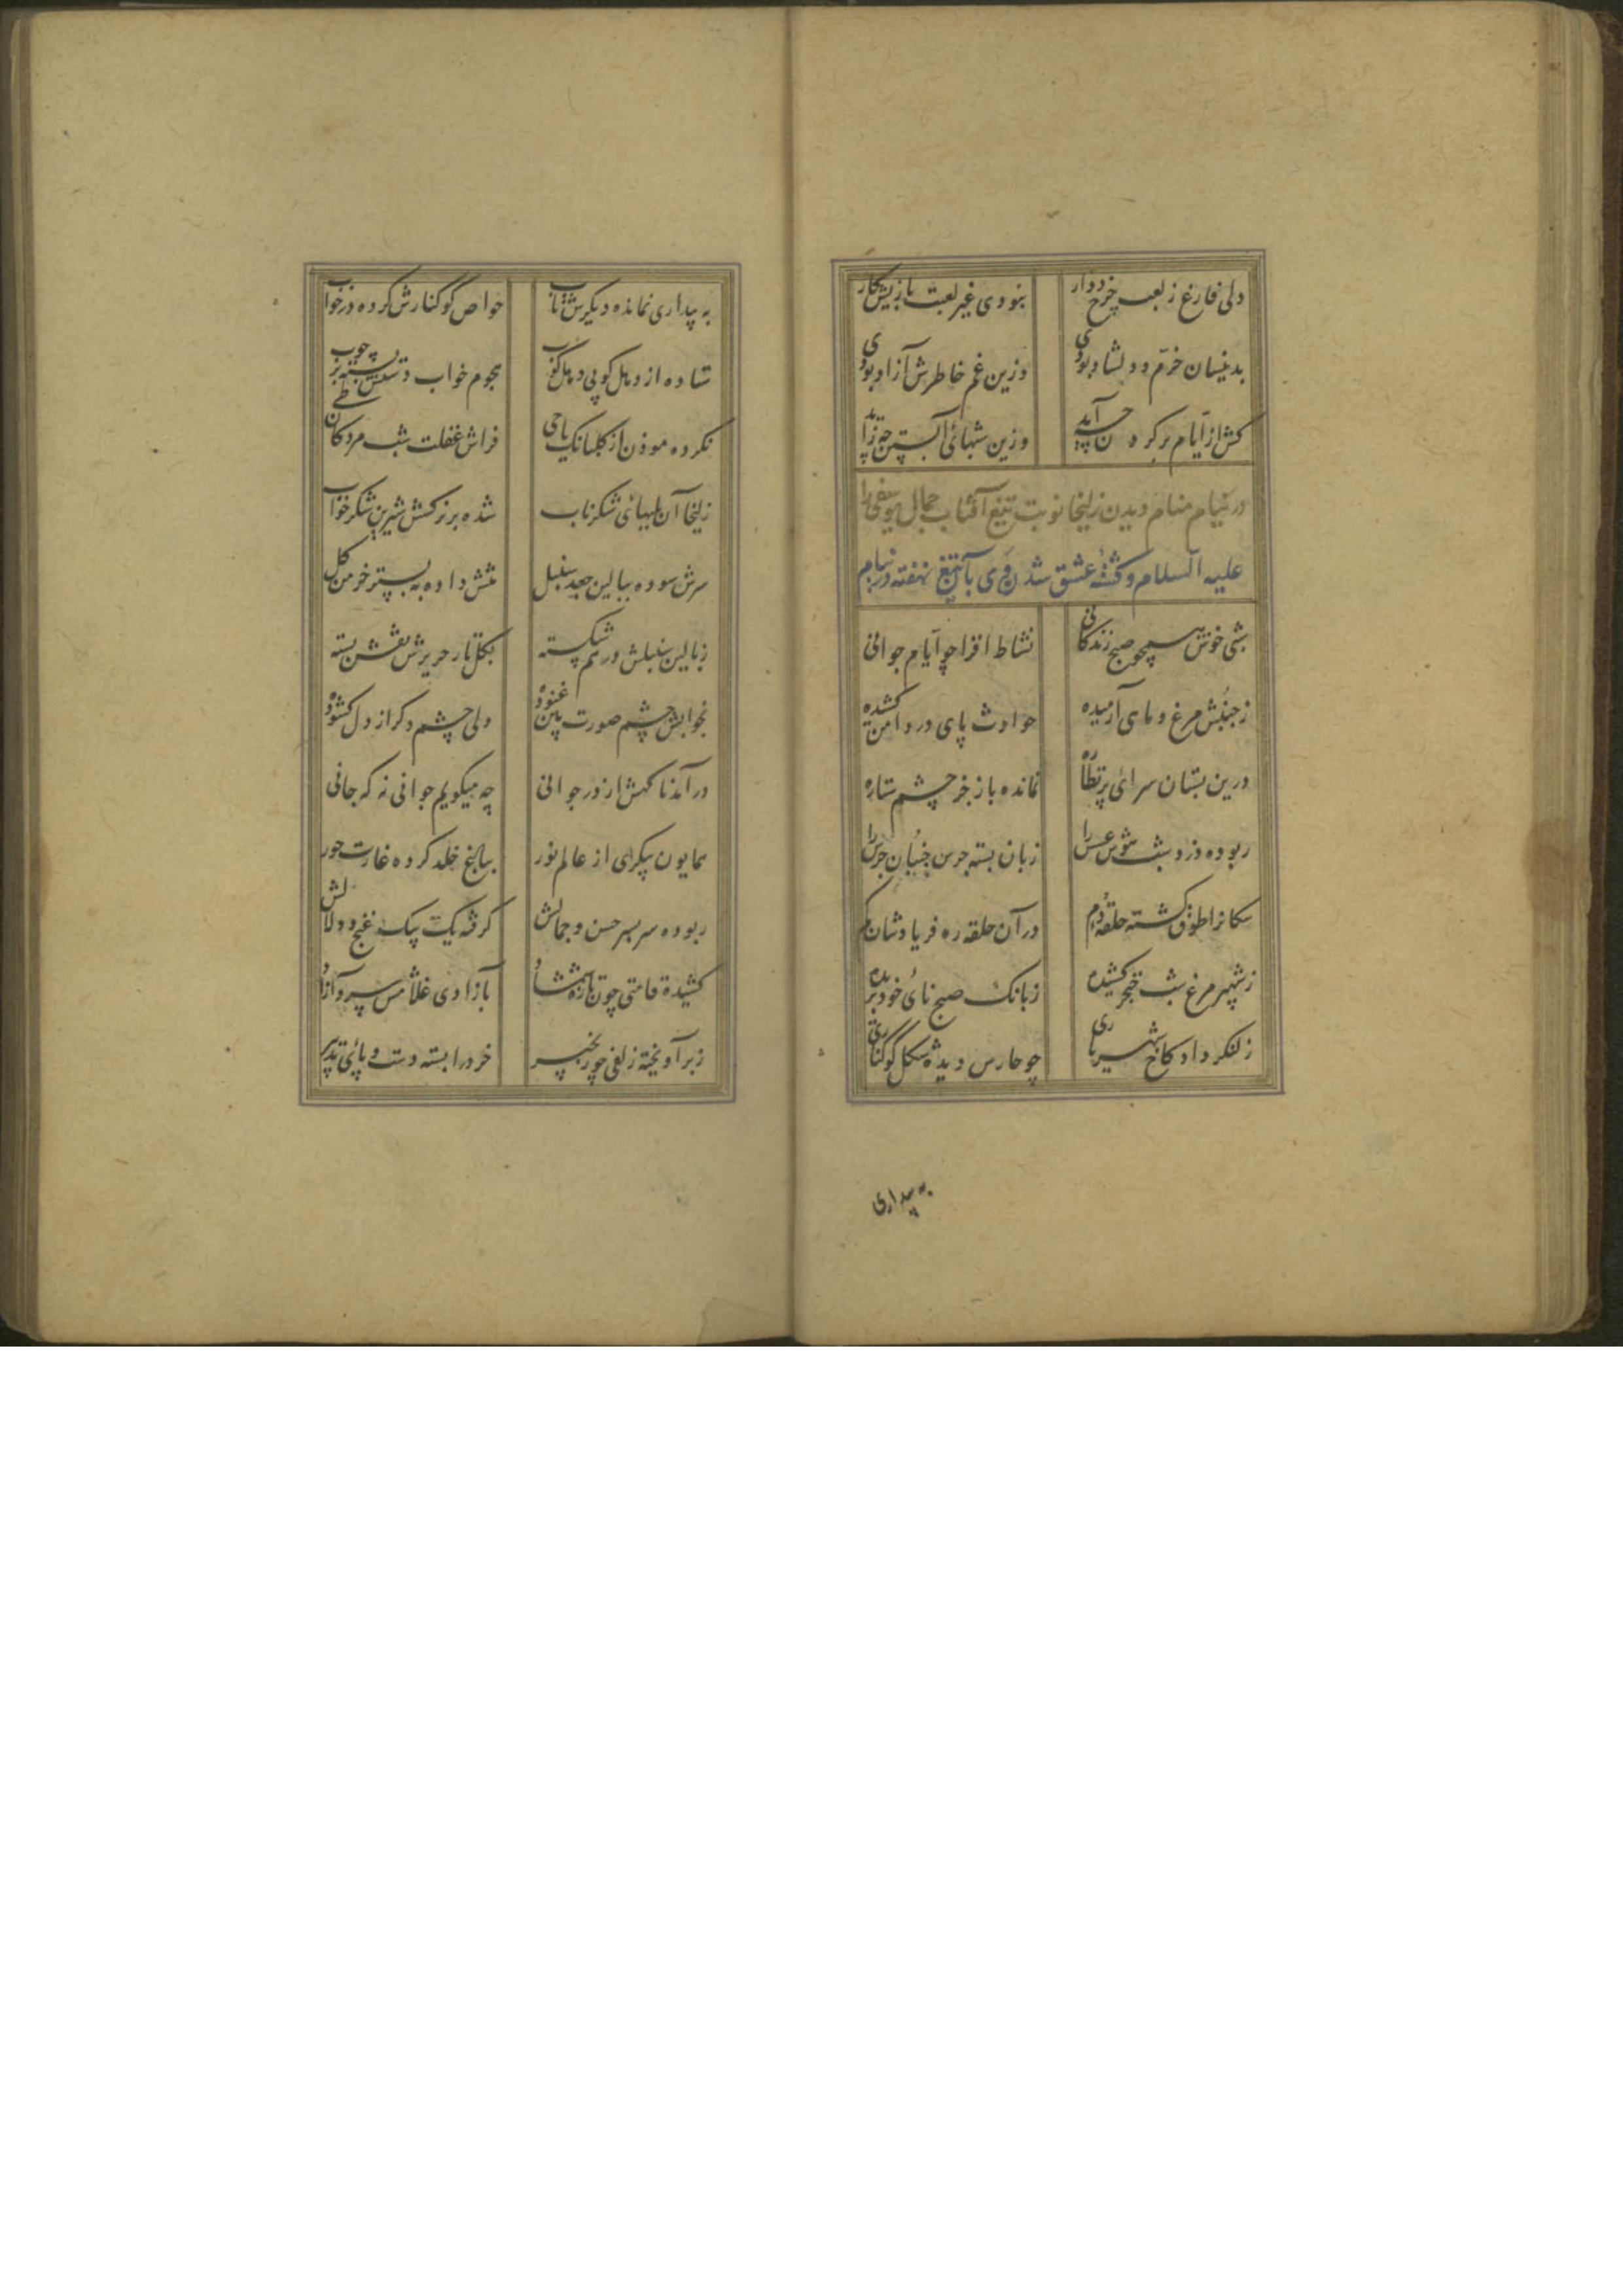 دلی فارغ ز لعب چرخ دوار نبودی غیر لعبت بازیش کار
بدینسان خرم و دلشاد بودی وزین غم خاطرش آزاد بودی
کش از ایام بر گردن چه آید وزین شبهای آبستن چه زاید
در نیام منام دیدن زلیخا نوبت تیغ آفتاب جمال یوسفی را
علیه السلام و کشته عشق شدن وی بآن تیغ نهفته در نیام
شبی خوش همچو صبح زندکانی نشاط افزا چو ایام جوانی
ز جنبش مرغ و ماهی آرمیده حوادث پای در دامن کشیده
درین بستان سرای پر نظاره نمانده باز جز چشم ستاره
ربوده دزد شب هوش عسس را زبان بسته جرس جنبان جرس را
سکانرا طوق کشته حلقه دم در آن حلقه ره فریادشان کم
ز شهپر مرغ شب خنجر کشیده ز بانک صبح نای خود بریده
ز کنکر داد کاخ شهریاری چو حارس دیده شکل کوکناری
به بیداری
به بیداری نمانده دیکرش تاب خواص کوکنارش کرده در خواب
ستاده از دهل کوبی دهل کوب هجوم خواب دستش بسته بر چوب
نکرده موذن از کلبانک یا حی فراش غفلت شب مردکان طی
زلیخا آن بلبهای شکر ناب شده بر نرکسش شیرین شکر خواب
سرش سوده ببالین جعد سنبل تنش داده به بستر خرمن کل
ز بالین سنبلش در هم شکسته بکل تار حریرش نقش بسته
بخوابش چشم صورت بین غنوده ولی چشم دکر از دل کشوده
در آمد ناکهش از در جوانی چه میکویم جوانی نه که جانی
همایون پیکری از عالم نور بباغ خلد کرده غارت حور
ربوده سر بسر حسن و جمالش کرفته یک بیک غنج و دلالش
کشیده قامتی چون تازه شمشاد بآزادی غلامش سرو آزاد
ز بر آویخته زلفی چو زنجیر خرد را بسته دست و پای تدبیر